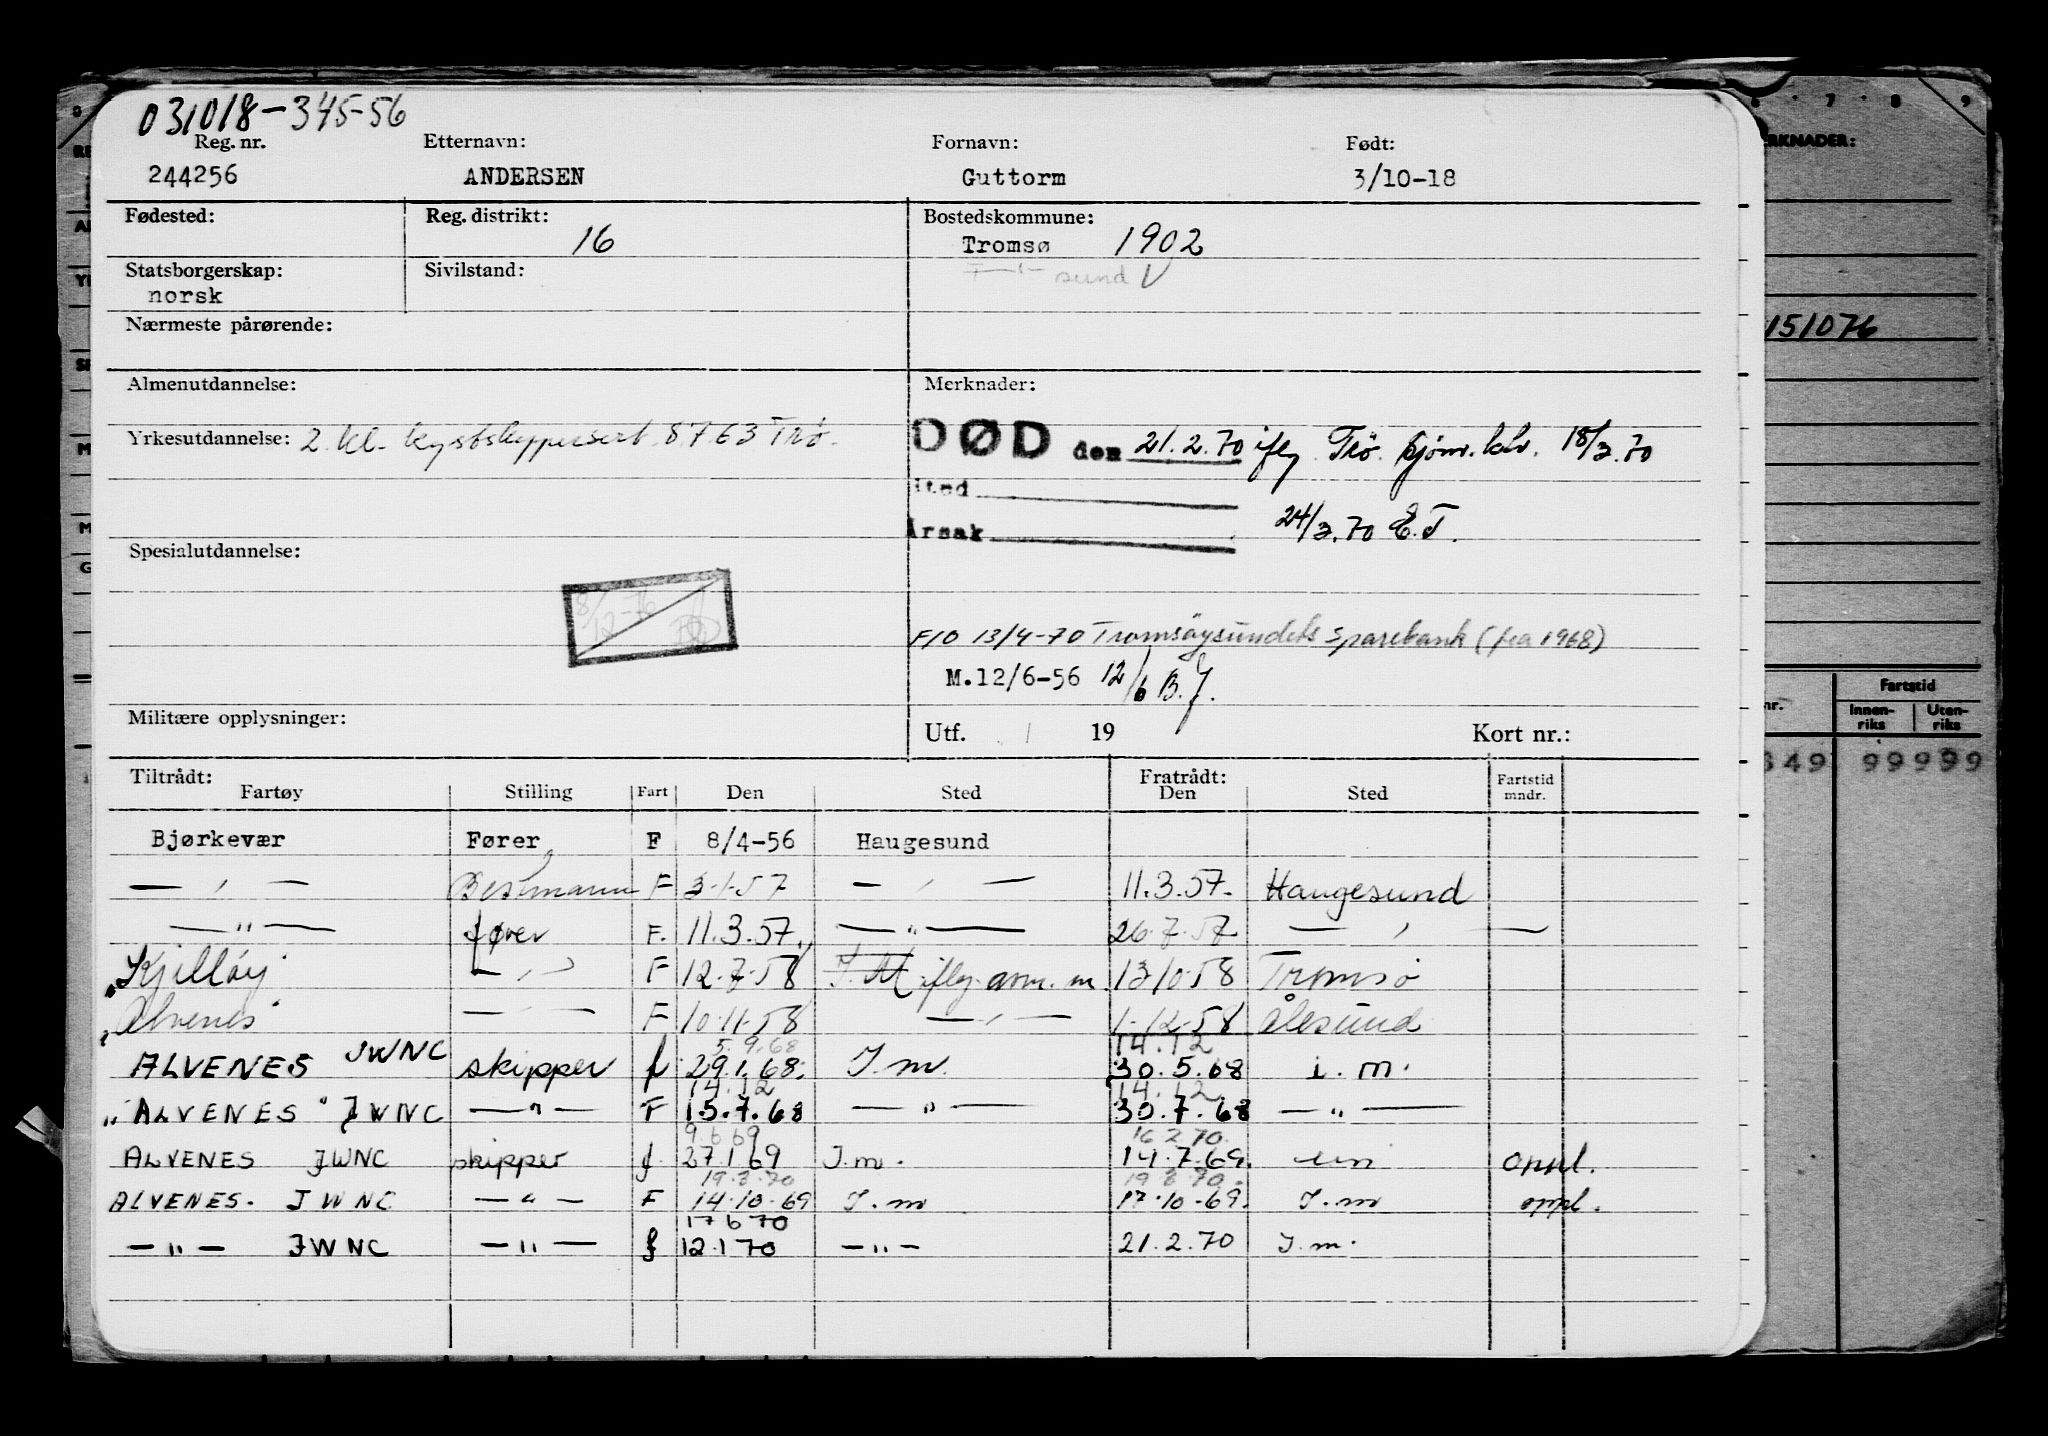 031018-345-56
Reg. nr. Etternavn: Fornavn: Født:
244256 ANDERSEN Guttorm 3/10-18
Fødested: Reg. distrikt: 16 Bostedskommune:
Tromsø 1902
Statsborgerskap: Sivilstand: sund
norsk
Nærmeste pårørende:
151076
Almenutdannelse: Merknader:
Yrkesutdannelse: 2. kl. kystskippersert. 8763 Trø.
DØD den 21.2.70 iflg Trø. sjømr. ktr. 18/3.70
Sted
Årsak 24/3.70 E.T.
Spesialutdannelse:
8/12-76
F/O 13/4-70 Tromsøysundets sparebank (fra 1968)
M.12/6-56 12/6 B.J.
Militære opplysninger: Utf. / 19 Kort nr.:
Fartstid
Innen-riks Uten-riks
349 99999
Tiltrådt: Fratrådt: Fartstid
Fartøy Stilling Fart Den Sted Den Sted mndr.
Bjørkevær Fører F 8/4-56 Haugesund
— " — Bestmann F 3.1.57 — " — 11.3.57. Haugesund
— " — fører F. 11.3.57. — " — 26.7.57 — " —
"Kjilløy" — " — F 12.7.58 I.M. iflg. arm. m 13/10.58 Tromsø
"Alvenes" — " — F 10.11.58 — " — 1.12.58 Ålesund
5.9.68 14.12
ALVENES JWNC skipper f 29.1.68. I.m. 30.5.68 i.m.
14.12 14.12
"ALVENES" JWNC — " — F 15.7.68 — " — 30.7.68 — " —
9.6 69 16 2 70
ALVENES JWNC skipper f. 27.1 69 I.m. 14.7.69. oppl.
19.3.70 19 3 70.
ALVENES. JWNC — " — F 14.10.69 I.m 17.10.69. I.m oppl.
17 6 70
— " — JWNC — " — f 12.1 70 — " — 21.2.70 I.m.